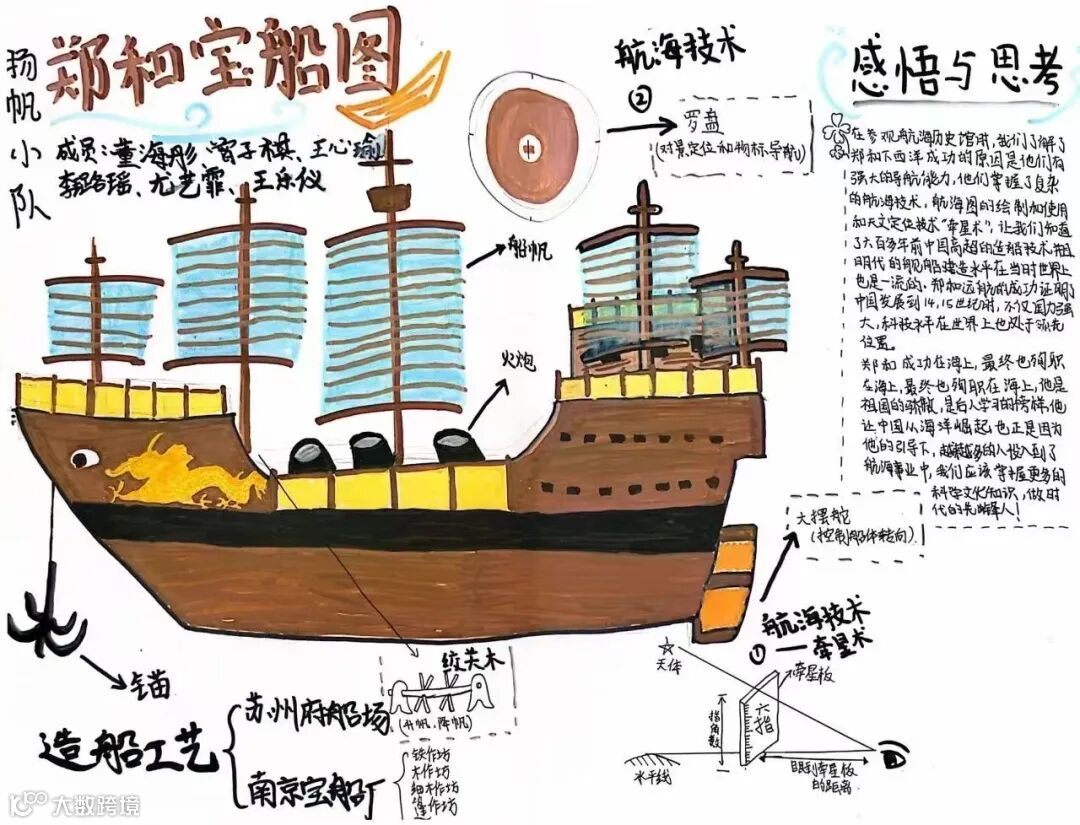 扬帆小队
郑和宝船图
成员:董海彤、曾子祺、王心瑜
李路瑶、尤艺霏、王乐仪
航海技术
②
罗盘
(对景定位和物标导航)
船帆
火炮
感悟与思考
在参观航海历史馆时,我们了解了
郑和下西洋成功的原因是他们有
强大的导航能力,他们掌握了复杂
的航海技术,航海图的绘制和使用
和天文定位技术“牵星术”,让我们知道
了六百多年前中国高超的造船技术,
明代的舰船建造水平在当时世界上
也是一流的,郑和远航的成功证明了
中国发展到14,15世纪时,不仅国力强
大,科技水平在世界上也处于领先
位置。
郑和成功在海上,最终也殉职
在海上,最终也殉职在海上,他是
祖国的骄傲,是后人学习的榜样,他
让中国从海洋崛起,也正是因为
他的引导下,越来越多的人投入到了
航海事业中,我们应该掌握更多的
科学文化知识,做时
代的先锋人!
大摆舵
(控制船体转向)
航海技术
①—牵星术
天体
牵星板
六指
指角数
水平线
眼到牵星板
的距离
锚
绞关木
(升帆、降帆)
造船工艺
苏州府船场
南京宝船厂
铁作坊
木作坊
细木作坊
篷作坊
大数跨境